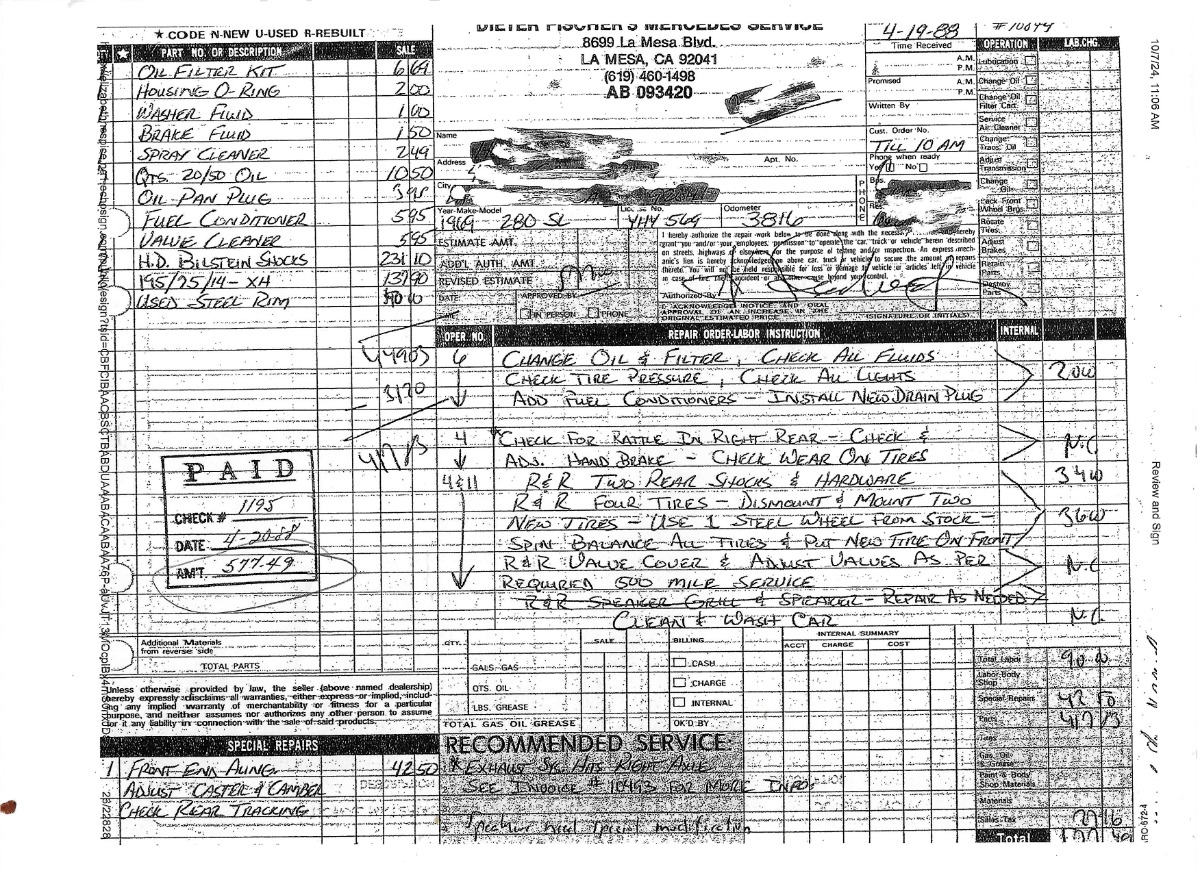 ★ CODE N-NEW U-USED R-REBUILT
★ PART NO. OR DESCRIPTION SALE
OIL FILTER KIT 6 69
HOUSING O-RING 2 00
WASHER FLUID 1 00
BRAKE FLUID 1 50
SPRAY CLEANER 2 49
QTS. 20/50 OIL 10 50
OIL PAN PLUG 3 95
FUEL CONDITIONER 5 95
VALUE CLEANER 5 95
H.D. BILSTEIN SHOCKS 231 10
195/75/14- XH 137 90
USED STEEL RIM 40 00
449 03
31 70
417 13
PAID
CHECK # 1195
DATE 4-20-88
AM'T. 577.49
Additional Materials
from reverse side
TOTAL PARTS
Unless otherwise provided by law, the seller (above named dealership)
hereby expressly disclaims all warranties, either express or implied, includ-
ing any implied warranty of merchantability or fitness for a particular
purpose, and neither assumes nor authorizes any other person to assume
for it any liability in connection with the sale of said products.
SPECIAL REPAIRS
1 FRONT END ALING 42 50
ADJUST CASTER & CAMBER
CHECK REAR TRACKING
DIETER FISCHER'S MERCEDES SERVICE
8699 La Mesa Blvd.
LA MESA, CA 92041
(619) 460-1498
AB 093420
Name
Address Apt. No.
City
Year-Make-Model Lic. No. Odometer
1969 280 SL YHY 569 3816
PHONE
Bus.
Res.
4-19-88
Time Received
A.M.
P.M.
Promised A.M.
P.M.
Written By
Cust. Order No.
TILL 10 AM
Phone when ready
Yes No
ESTIMATE AMT.
ADD'L AUTH. AMT.
REVISED ESTIMATE
DATE APPROVED BY
IN PERSON PHONE
I hereby authorize the repair work below to be done along with the necessary
grant you and/or your employees, permission to operate the car, truck or vehicle herein described
on streets, highways or elsewhere for the purpose of testing and/or inspection. An express mech-
anic's lien is hereby acknowledged on above car, truck or vehicle to secure the amount of repairs
thereto. You will not be held responsible for loss or damage to vehicle or articles left in vehicle
in case of fire, theft, accident or any other cause beyond your control.
Authorized By
ACKNOWLEDGE NOTICE AND ORAL
APPROVAL OF AN INCREASE IN THE
ORIGINAL ESTIMATED PRICE.
(SIGNATURE OR INITIALS)
OPER. NO. REPAIR ORDER-LABOR INSTRUCTION INTERNAL
6 CHANGE OIL & FILTER, CHECK ALL FLUIDS
CHECK TIRE PRESSURE, CHECK ALL LIGHTS 20 00
ADD FUEL CONDITIONERS - INSTALL NEW DRAIN PLUG
4 *CHECK FOR RATTLE IN RIGHT REAR - CHECK & N.C.
ADJ. HAND BRAKE - CHECK WEAR ON TIRES
4 & 11 R&R TWO REAR SHOCKS & HARDWARE 34 00
R&R FOUR TIRES - DISMOUNT & MOUNT TWO
NEW TIRES - USE 1 STEEL WHEEL FROM STOCK - 36 00
SPIN BALANCE ALL TIRES & PUT NEW TIRE ON FRONT
R&R VALUE COVER & ADJUST VALUES AS PER N.C.
REQUIRED 500 MILE SERVICE
R&R SPEAKER GRILL & SPEAKER - REPAIR AS NEEDED
CLEAN & WASH CAR N.C.
QTY. SALE
GALS. GAS
QTS. OIL
LBS. GREASE
TOTAL GAS OIL GREASE
BILLING
CASH
CHARGE
INTERNAL
OK'D BY
INTERNAL SUMMARY
ACCT CHARGE COST
RECOMMENDED SERVICE
* EXHAUST SYS. HITS RIGHT AXLE
SEE INVOICE # 10493 FOR MORE INFO.
OPERATION LAB.CHG.
Lubrication
Change Oil
Change Oil
Filter Cart.
Service
Air Cleaner
Change
Trans. Oil
Adjust
Transmission
Change
Pack Front
Wheel Brgs.
Rotate
Tires
Adjust
Brakes
Retain
Parts
Destroy
Parts
Total Labor 90 00
Labor-Body
Shop
Special Repairs 42 50
Parts 417 13
Gas, Oil,
Grease
Paint & Body
Shop Materials
Materials
Sales Tax 27 16
Total 577 49
10/7/24, 11:06 AM
Review and Sign
RO-6724